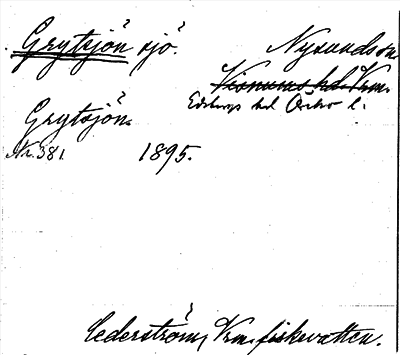 Grytsjön sjö. Nysunds sn.
Visnums hd. Vrm.
Edsbergs hd Örebro l.
Grytsjön.
Nr. 381. 1895.
Cederström, Vrm. fiskevatten.